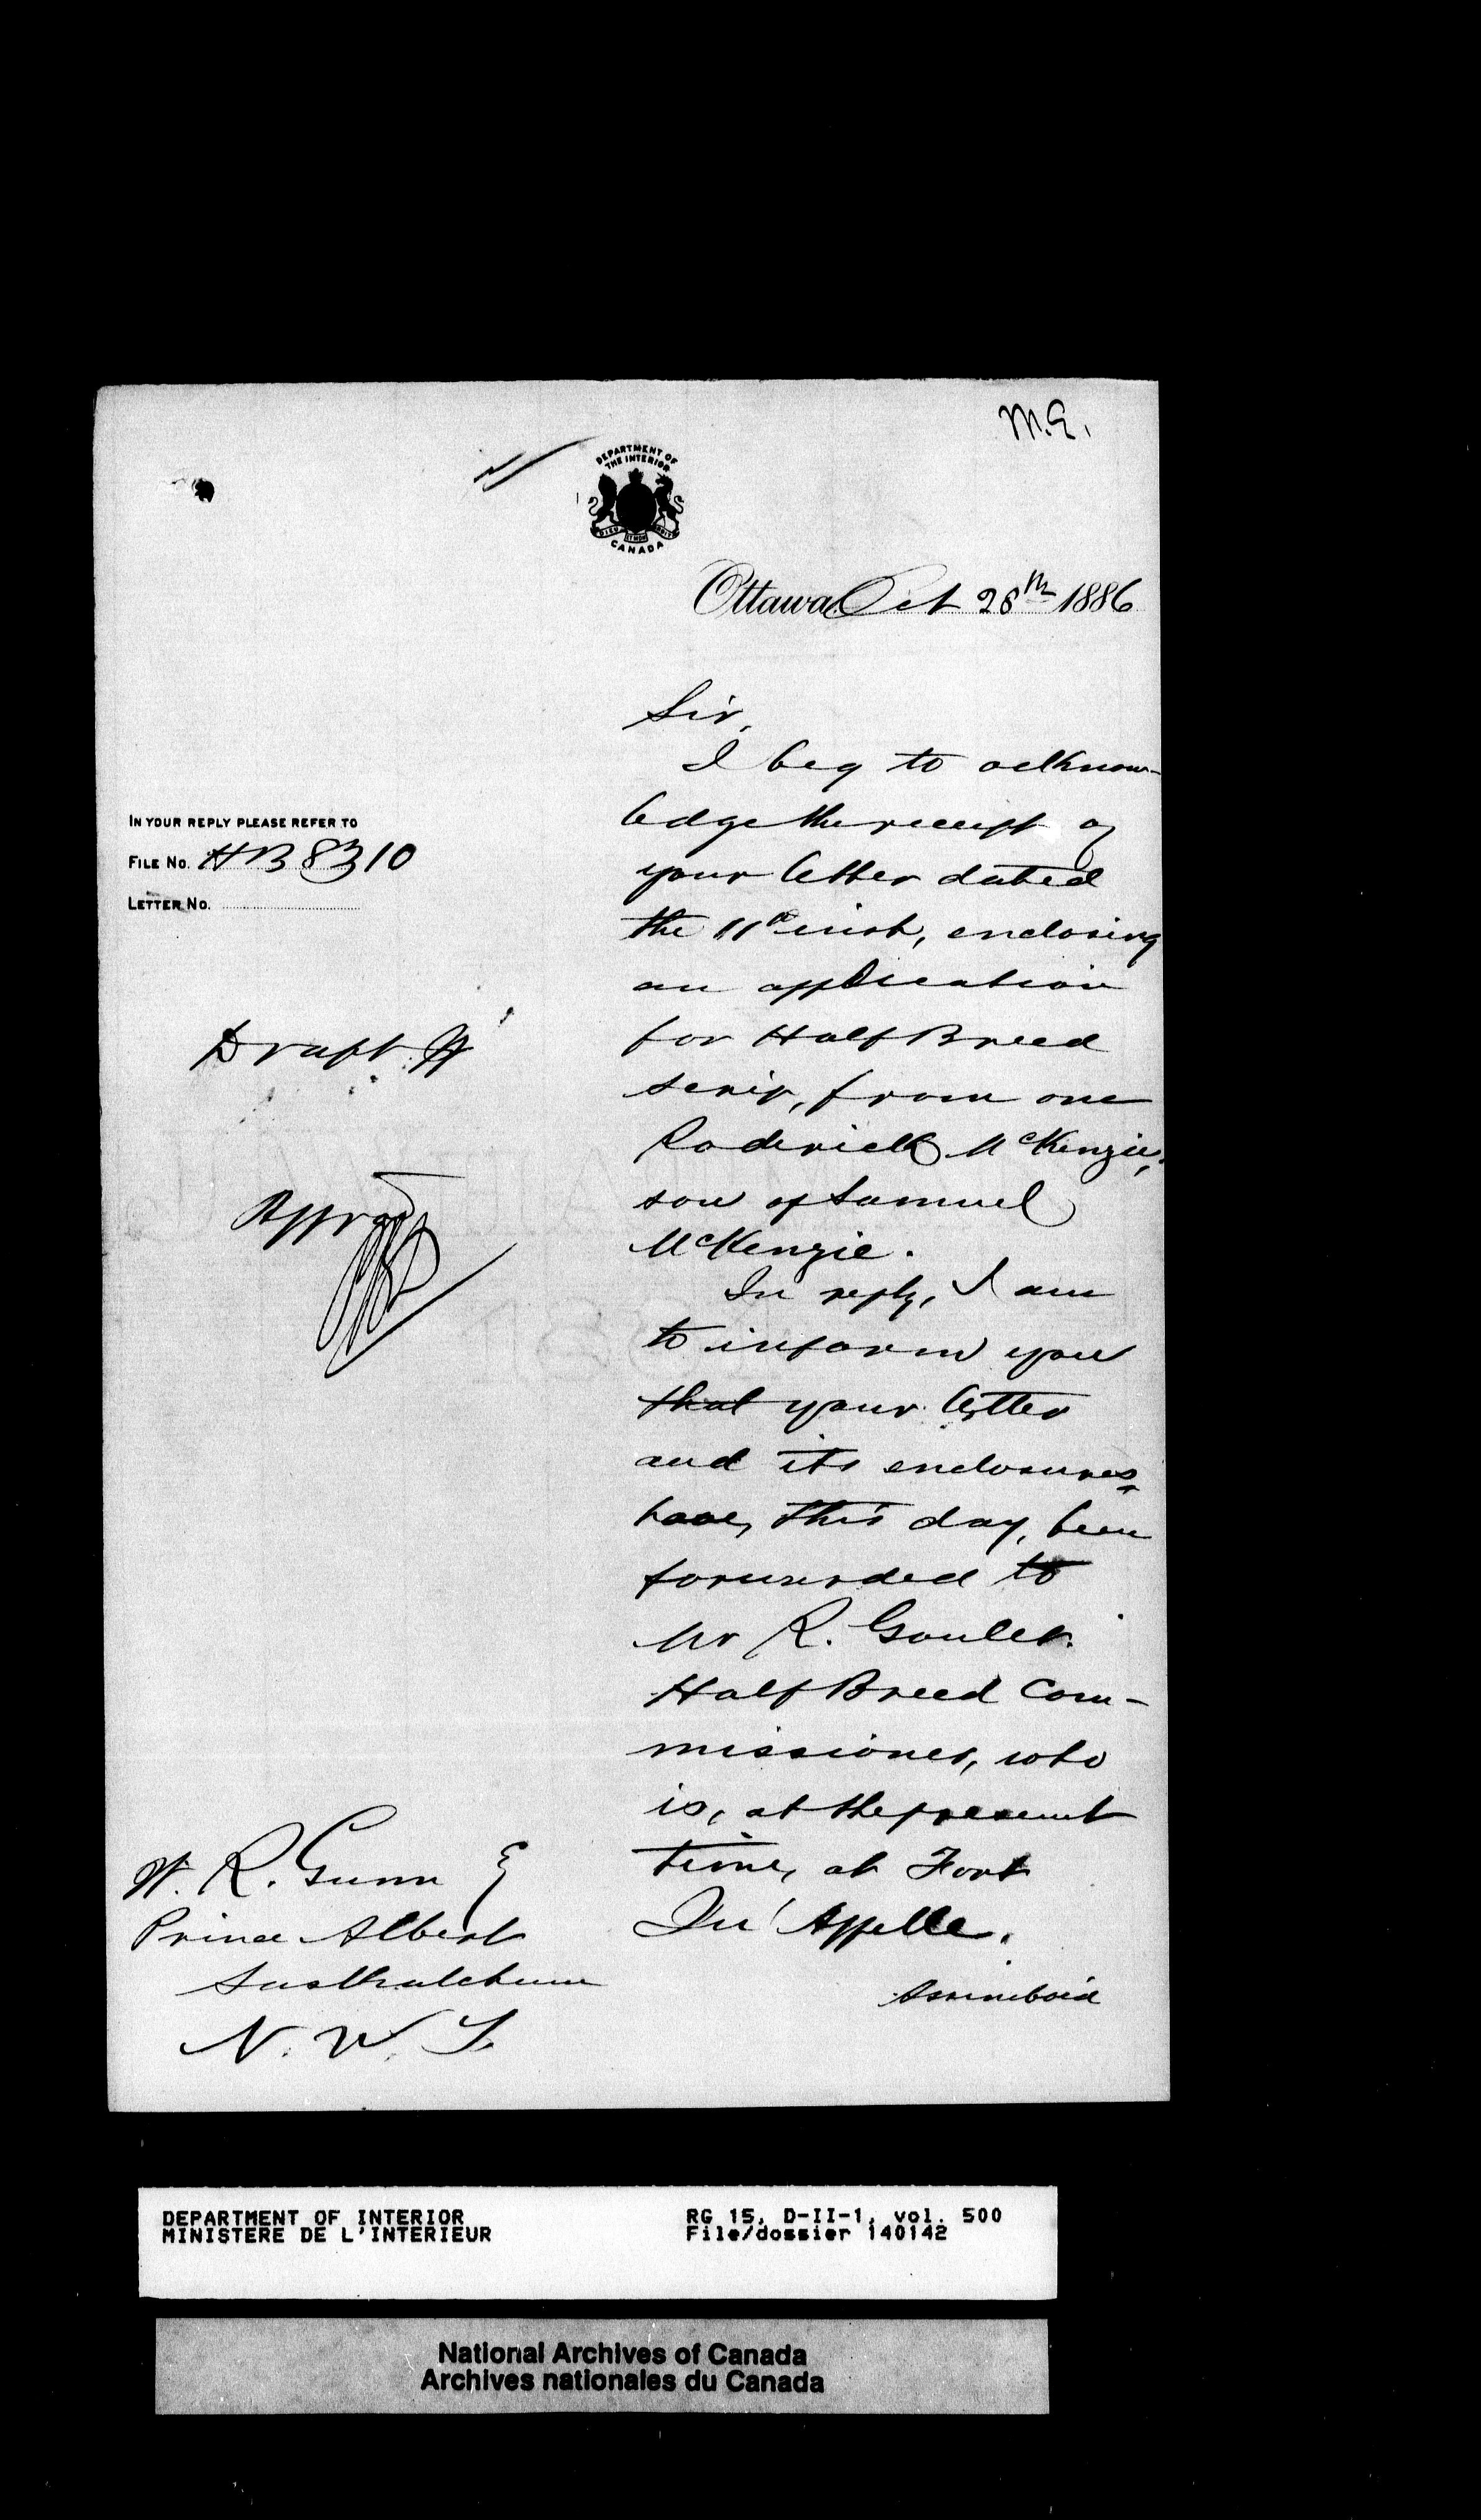 M.E.
DEPARTMENT OF
THE INTERIOR
CANADA
Ottawa, Oct 28th 1886
Sir,
I beg to acknow-
ledge the receipt of
your letter dated
the 11th inst, enclosing
an application
for Half Breed
scrip, from one
Roderick McKenzie,
son of Samuel
McKenzie.
In reply, I am
to inform you
that your letter
and its enclosures
have, this day, been
forwarded to
Mr R. Goulet.
Half Breed Com-
missioner, who
is, at the present
time, at Fort
Qu'Appelle.
Assiniboia
IN YOUR REPLY PLEASE REFER TO
FILE No. HB 8310
LETTER No.
Draft
Appred
W. R. Gunn E
Prince Albert
Saskatchewan
N. W. T.
DEPARTMENT OF INTERIOR
MINISTERE DE L'INTERIEUR
RG 15, D-II-1, vol. 500
File/dossier 140142
National Archives of Canada
Archives nationales du Canada